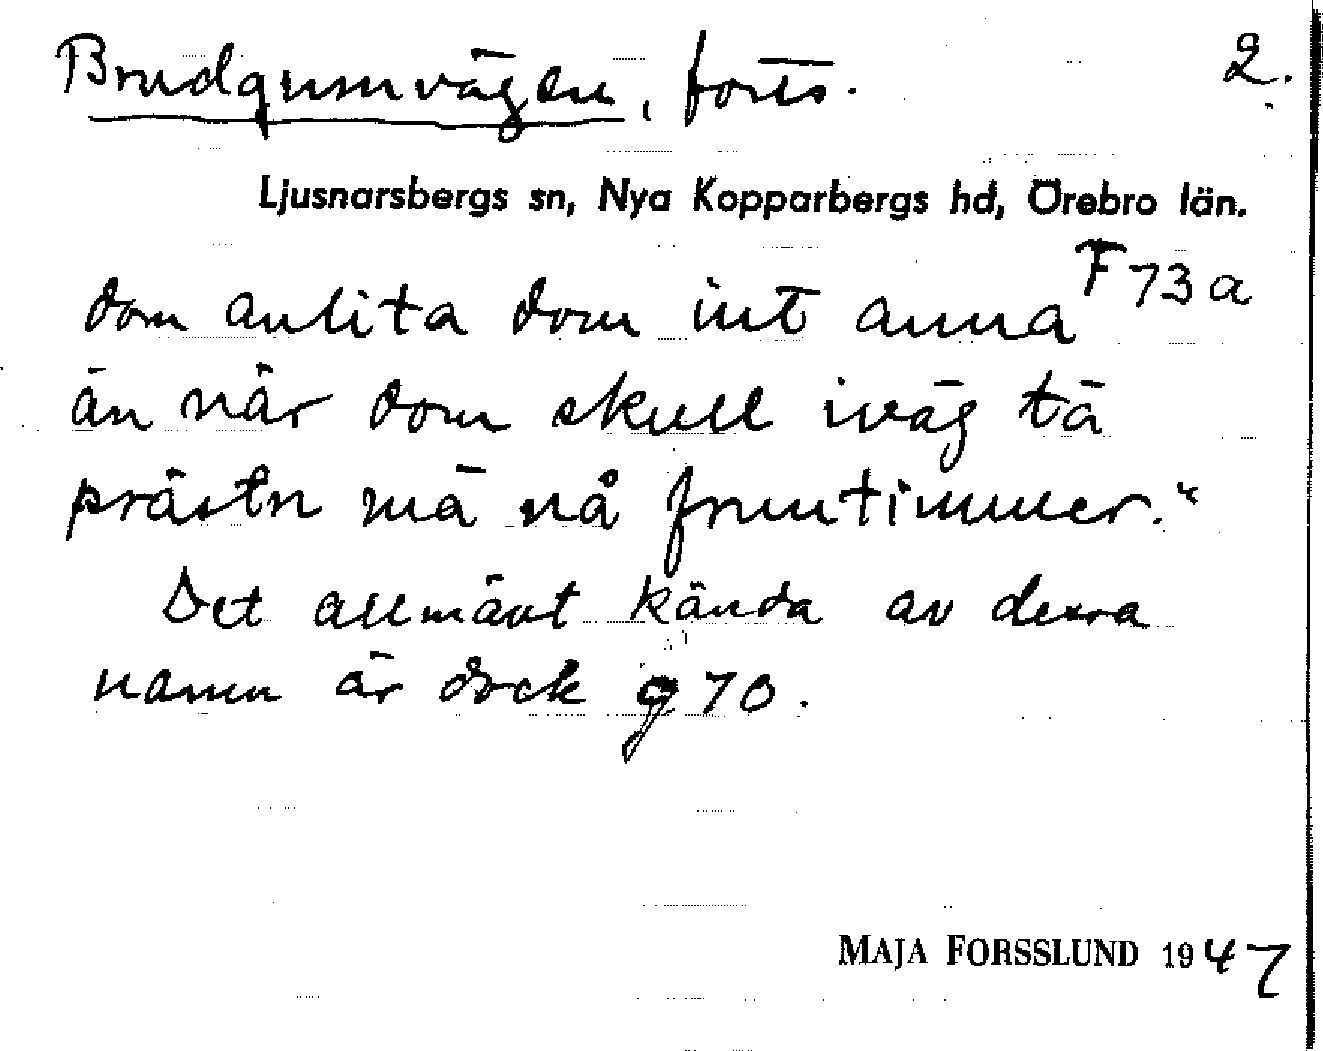 Brudgumvägen, forts. 2.
Ljusnarsbergs sn, Nya Kopparbergs hd, Örebro län.
F 73 a
dom anlita dom int anna
än när dom skull iväg tä
prästn mä nå fruntimmer."
Det allmänt kända av dessa
namn är dock g 70.
MAJA FORSSLUND 1947